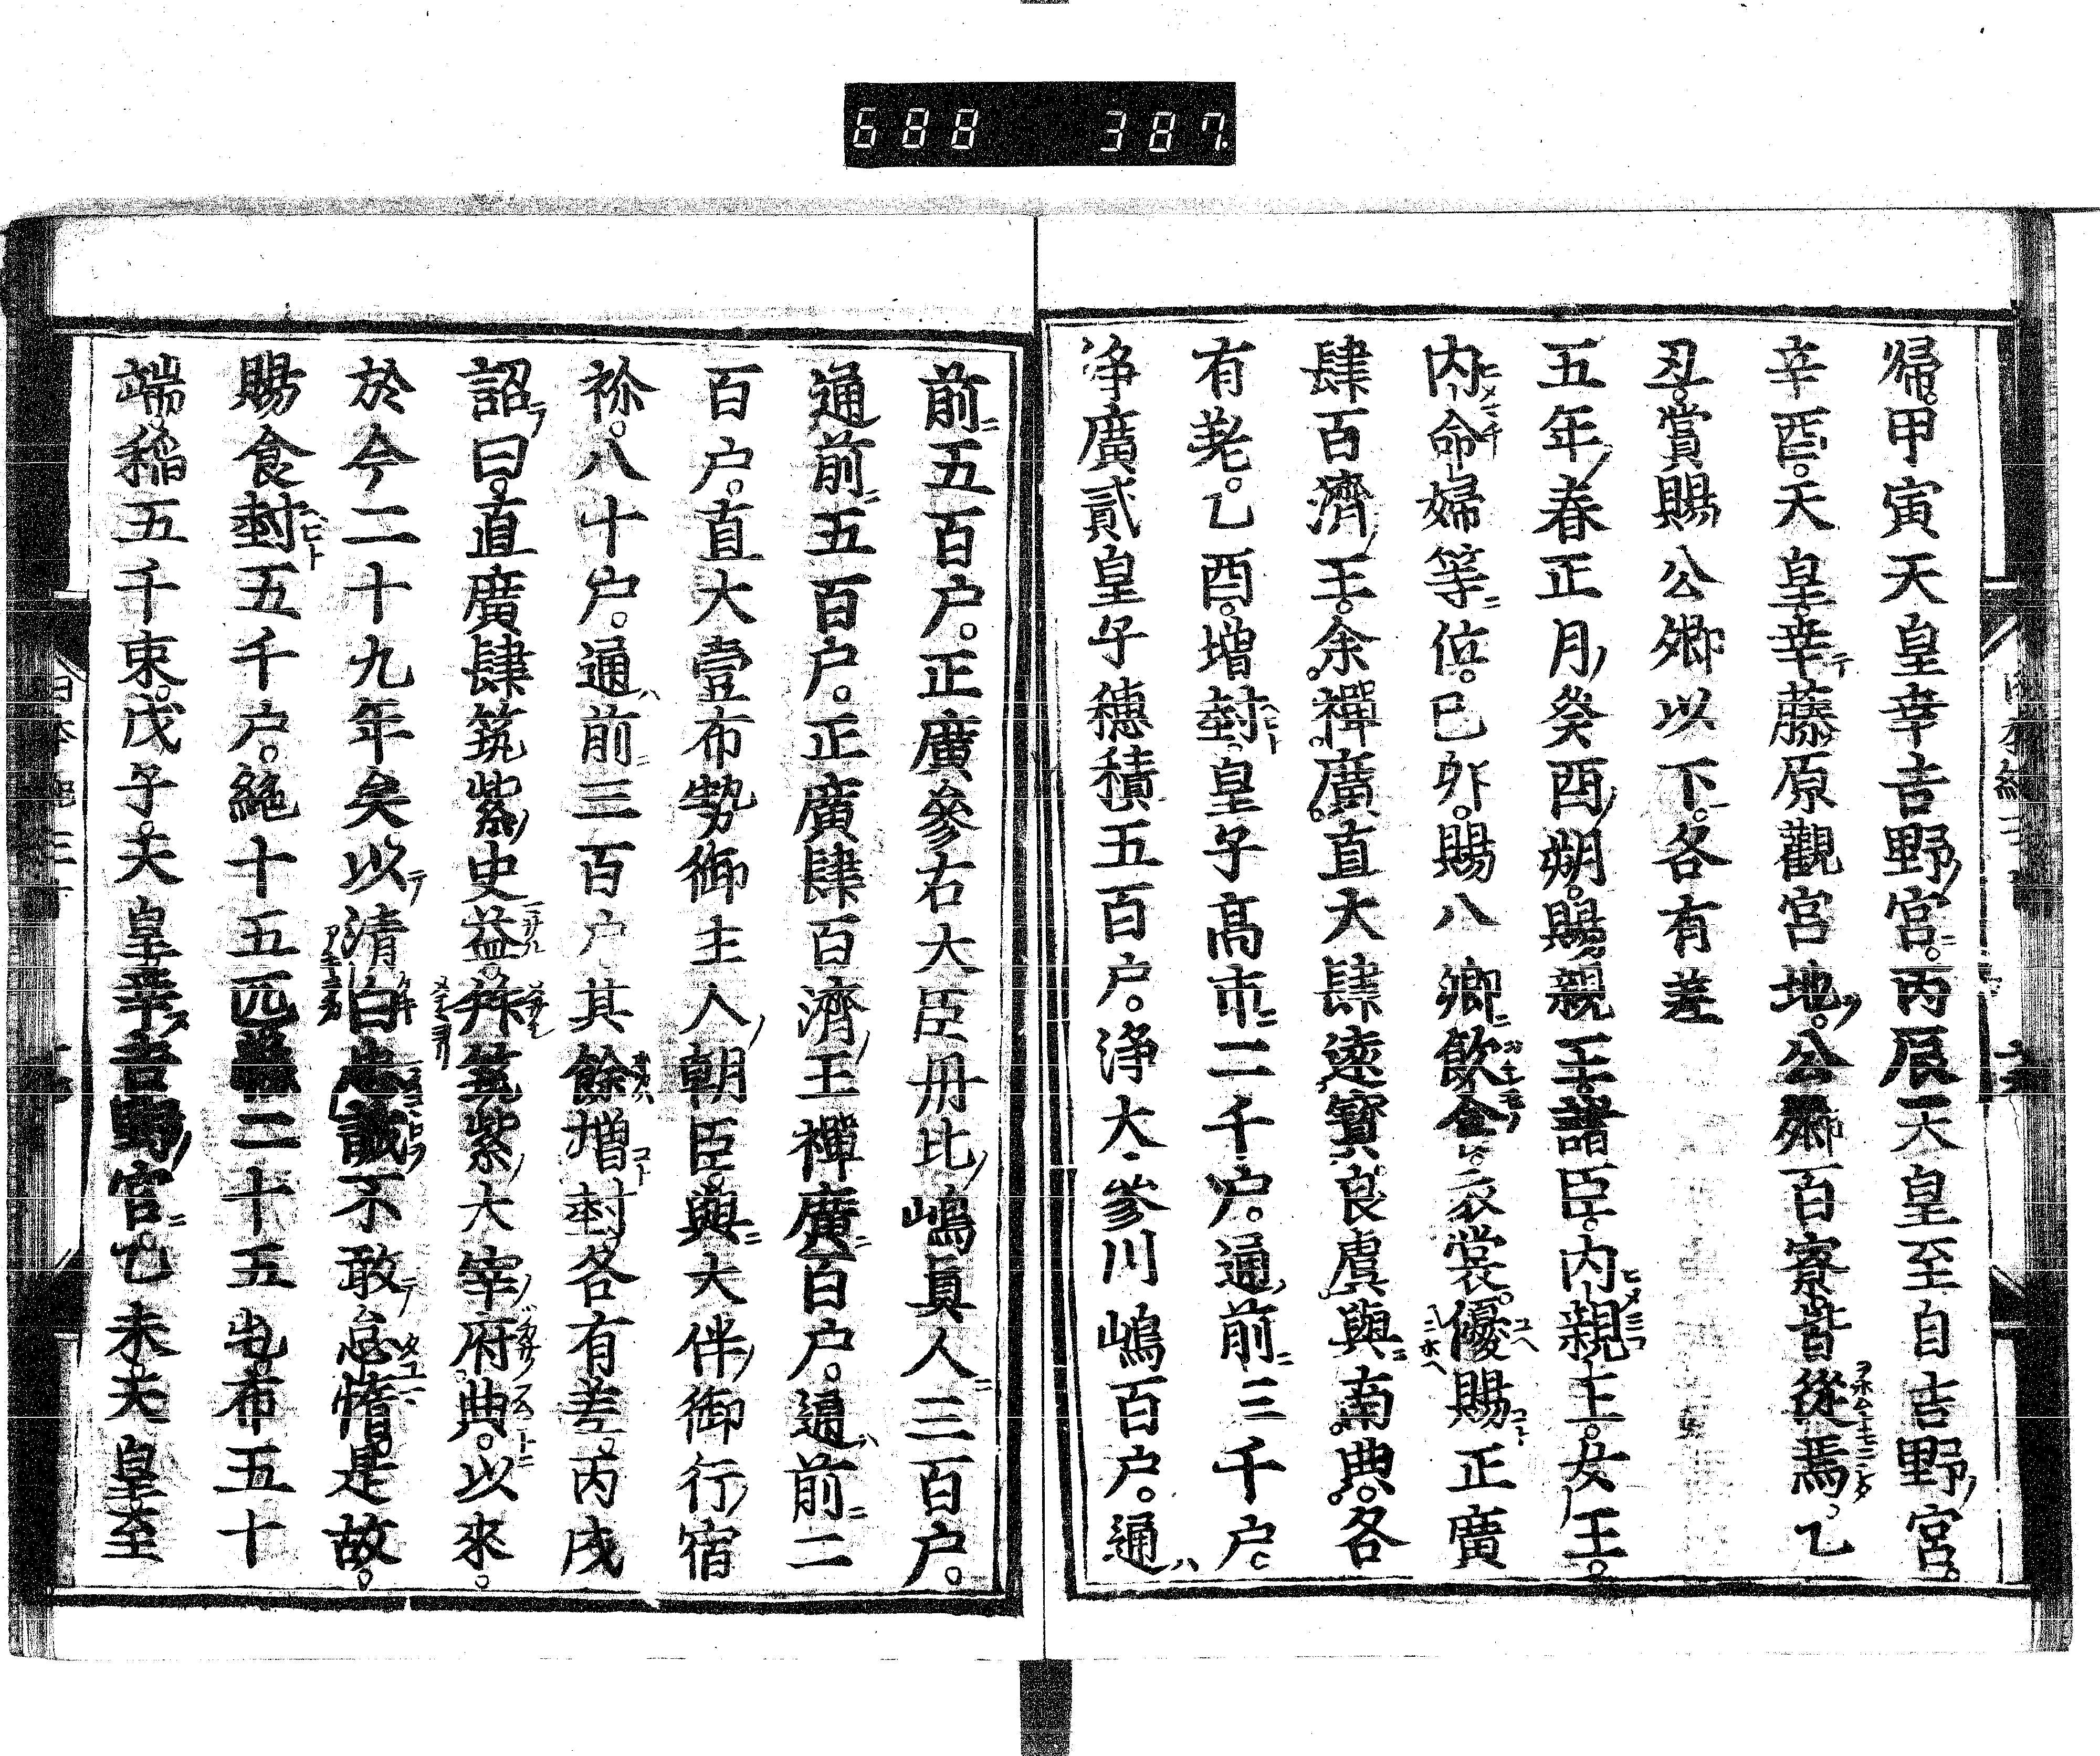 688 387
歸甲寅天皇幸吉野宮丙辰天皇至自吉野宮
辛酉天皇幸藤原觀宮地公卿百寮皆從焉乙
丑賞賜公卿以下各有差
五年春正月癸酉朔賜親王諸臣内親王女王
内命婦等位己卯賜八卿飲食衣裳優賜正廣
肆百濟王余禪廣直大肆遠寶良虞與南典各
有差乙酉增封皇子高市二千户通前三千户
浄廣貳皇子穗積五百户浄大參川嶋百户通
前五百户正廣參右大臣丹比嶋真人三百户
通前五百户正廣肆百濟王禪廣百户通前二
百户直大壹布勢御主人朝臣與大伴御行宿
祢八十户通前三百户其餘增封各有差丙戌
詔曰直廣肆筑紫史益拜筑紫大宰府典以來
於今二十九年矣以清白忠誠不敢怠惰是故
賜食封五千户絁十五匹二十五屯布五十
端稲五千束戊子天皇幸吉野宮乙未天皇至